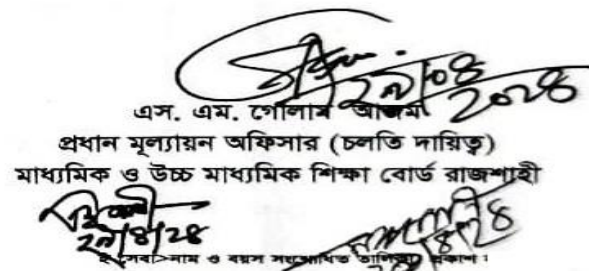 ২৯/০৪
২০২৪
এস. এম. গোলাম আজম
প্রধান মূল্যায়ন অফিসার (চলতি দায়িত্ব)
মাধ্যমিক ও উচ্চ মাধ্যমিক শিক্ষা বোর্ড রাজশাহী
২৯/৪/২৪
নাম ও বয়স সংশোধিত তালিকা প্রকাশ।